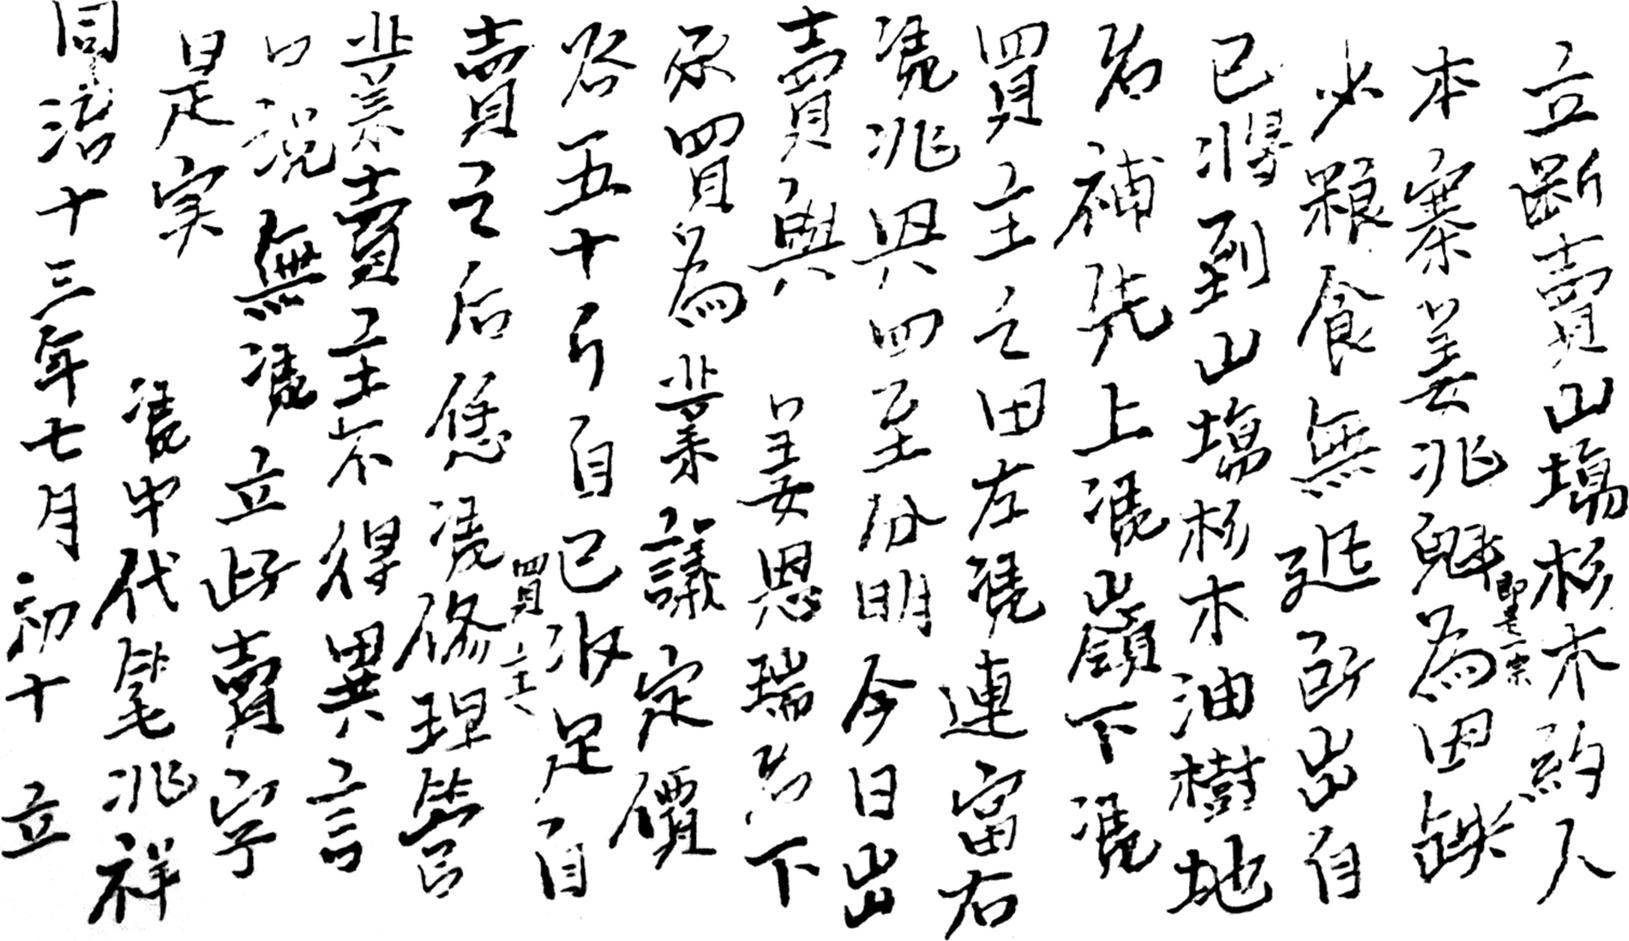 立斷賣山塲杉木約人
本寨姜兆魁為因缺
少粮食無
所出自
己將到山塲杉木油樹地
名補先上凴山嶺下凴
買主之田左凴連富右
凴兆興四至份明今日出
賣與
姜恩瑞名下
承買為業議定價
五十
自己收足自
買主
賣之后
凴
修理管
業賣主不得異言
口説無凴立此賣字
是実
凴中代筆兆祥
同治十三年七月初十 立